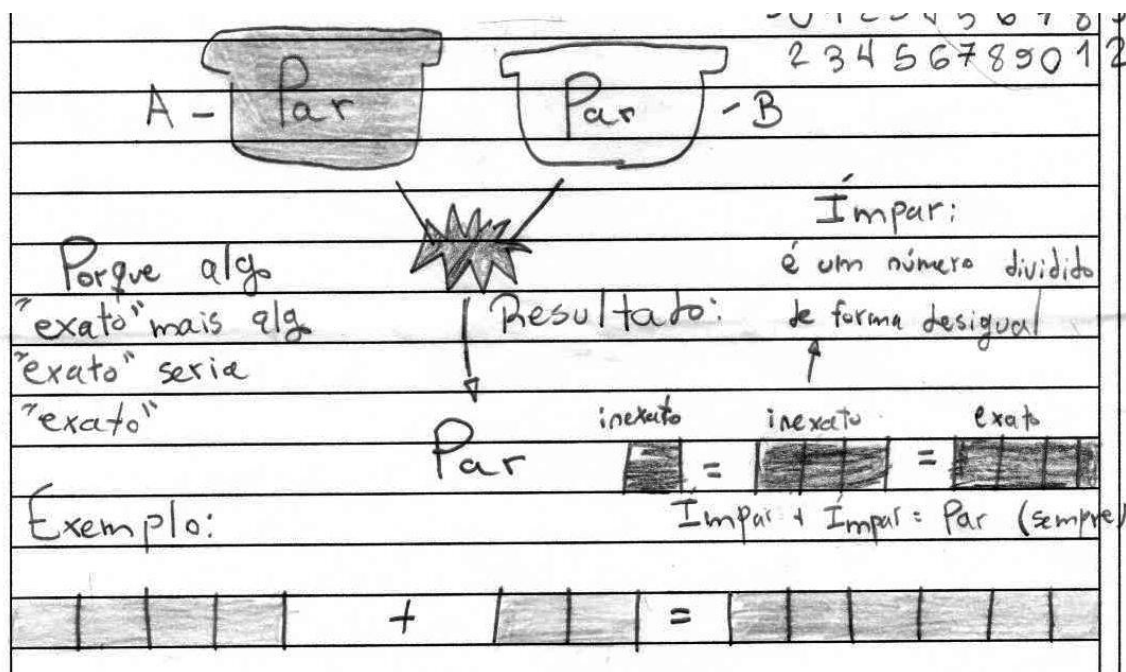 2 3 4 5 6 7 8 9 0 1 2
A - Par
Par - B
Ímpar:
é um número dividido
de forma desigual
Porque algo
"exato" mais alg
"exato" seria
"exato"
Resultado:
Par
inexato inexato exato
= =
Ímpar + Ímpar = Par (sempre)
Exemplo:
+ =